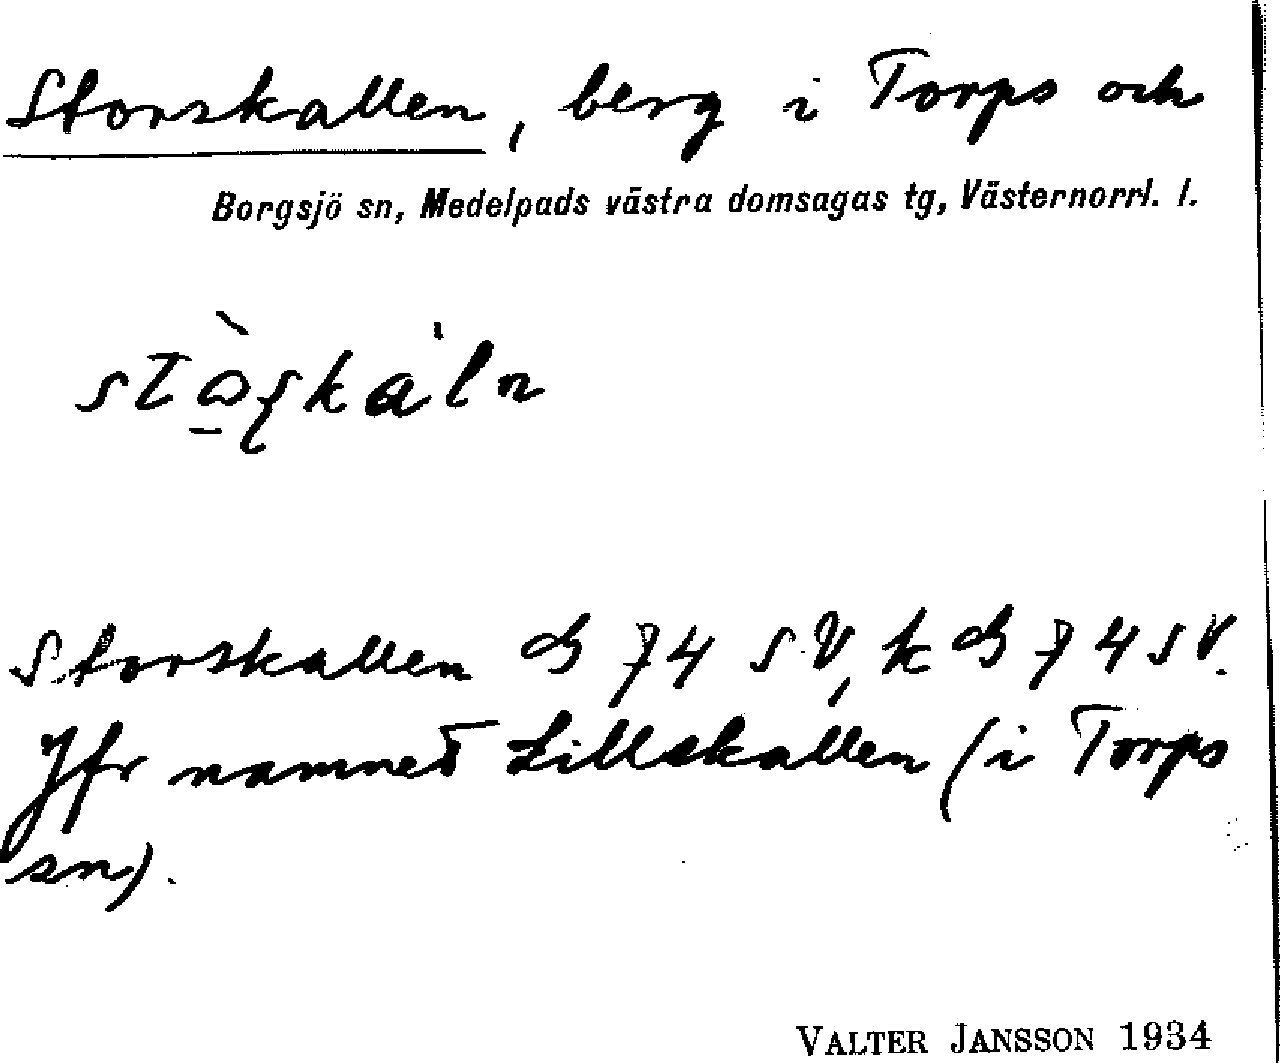 Storskallen, berg i Torps och
Borgsjö sn, Medelpads västra domsagas tg, Västernorrl. l.
Storskallen G 74 SV, k G 74 SV.
Jfr namnet Lillskallen (i Torps
sn).
VALTER JANSSON 1934